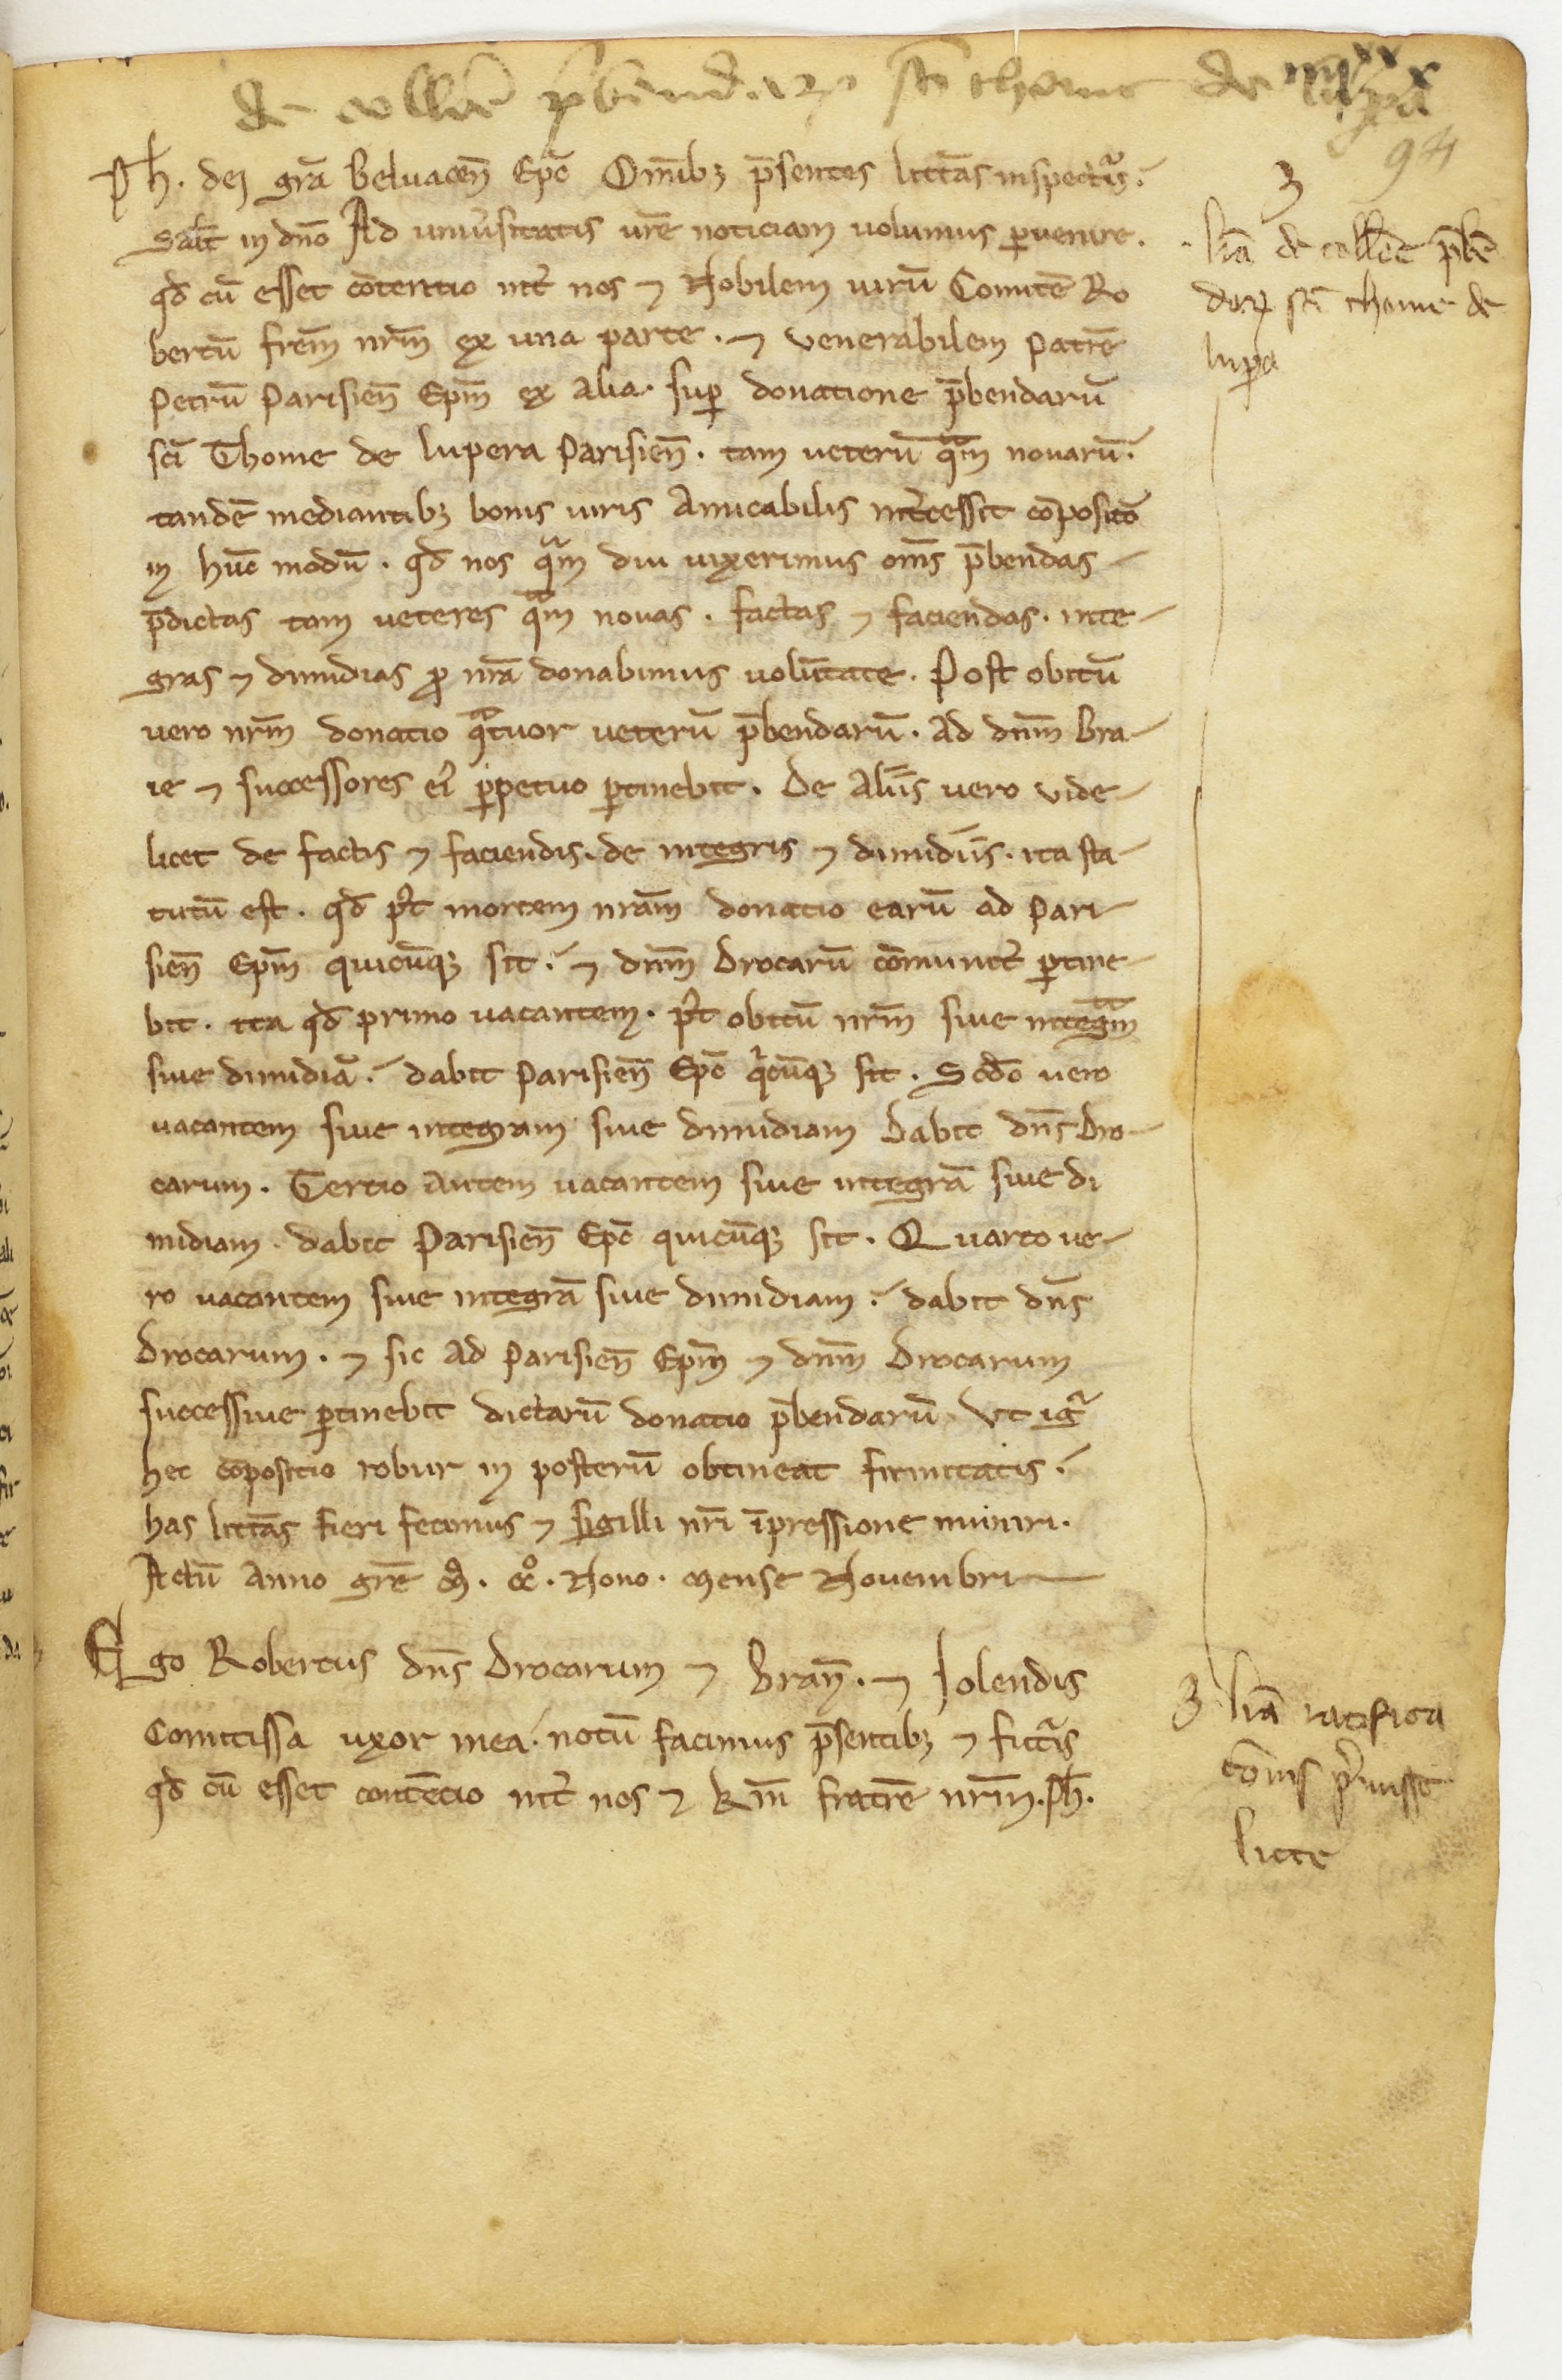 de collatōe p̄bendarꝝ sci thome de lupa
iiii xx x
94
Ph. dei grā Beluacen̄ Ep̄c Om̄ibꝫ p̄sentes litt̄as inspecturis.
salt̄ in dn̄o Ad uniuͦsitatis ur̄e noticiam uolumus ꝑuenire.
qd̄ cū esset cōtentio int̄ nos ⁊ Nobilem uirū Comitē Ro
bertū fr̄em nr̄m ex una parte. ⁊ venerabilem Patrē
Petrū Parisien̄ Ep̄m ex alia. suꝑ donatione p̄bendarū
sc̄i Thome de lupera Parisien̄. tam ueterū qᵃm nouarū.
tandē mediantibꝫ bonis uiris Amicabilis int̄cessit cōpositō
in hūc modū. qd̄ nos qᵃm diu uixerimus om̄s p̄bendas
p̄dictas tam ueteres qᵃm nouas. factas ⁊ faciendas. inte
gras ⁊ dimidias ꝓ nr̄a donabimus uolūtate. Post obitū
uero nr̄m donatio qᵃtuor ueterū p̄bendarū. ad dn̄m bra
ie ⁊ successores eiͥ ꝑpetuo ꝑtinebit. De aliis uero vide
licet de factis ⁊ faciendis. de integris ⁊ dimidiis. ita sta
tutū est. qd̄ pͦt mortem nr̄am donatio earū ad Pari
sien̄ Ep̄m quicūqꝫ sit. ⁊ dn̄m Drocarū cōmunit̄ ꝑtine
bit. ita qd̄ primo uacantem. pͦt obitū nr̄m siue integᵃm
siue dimidiā. dabit Parisien̄ Ep̄c qͥcūqꝫ sit. Scd̄o uero
uacantem siue integram siue dimidiam Dabit dn̄s Dro
carum. Tertio autem uacantem siue integrā siue di
midiam. dabit Parisien̄ Ep̄c quicūqꝫ sit. Quarto ue
ro uacantem siue integrā siue dimidiam. dabit dn̄s
Drocarum. ⁊ sic ad Parisien̄ Ep̄m ⁊ dn̄m Drocarum
successiue ꝑtinebit dictarū donatio p̄bendarū. Vt igͥ
hec cōpositio robur in posterū obtineat firmitatis.
has litt̄as fieri fecimus ⁊ Sigilli nr̄i īpressione muniri.
Actū anno gr̄e mͦ. ccͦ. Nono. mense Nouembri
Ego Robertus dn̄s Drocarum ⁊ Bran̄. ⁊ Jolendis
Comitissa uxor mea. notū facimus p̄sentibꝫ ⁊ futᵃis
qd̄ cū esset contēcio int̄ nos ⁊ km̄ fratrē nr̄m. ph̄.
3
lr̄a de coll̄one p̄bē
darꝝ sci thome de
lupa
3 lr̄a ratifica
cōnis p̄misse
litte